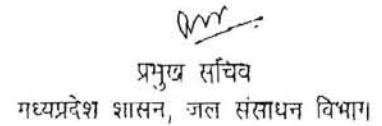 प्रमुख सचिव
मध्यप्रदेश शासन, जल संसाधन विभाग।